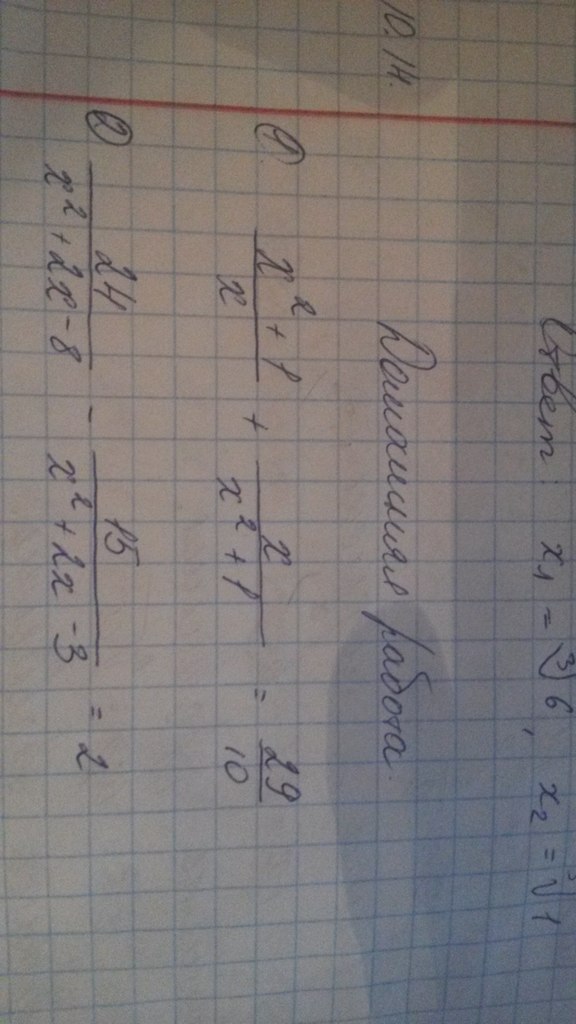 Ответ: x₁ = ∛6, x₂ = ∛1
10.14.
Домашняя работа.
① (x² + 1)/x + x/(x² + 1) = 29/10
② 24/(x² + 2x - 8) - 15/(x² + 2x - 3) = 2